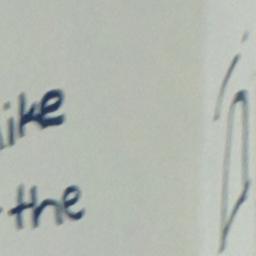 like
the